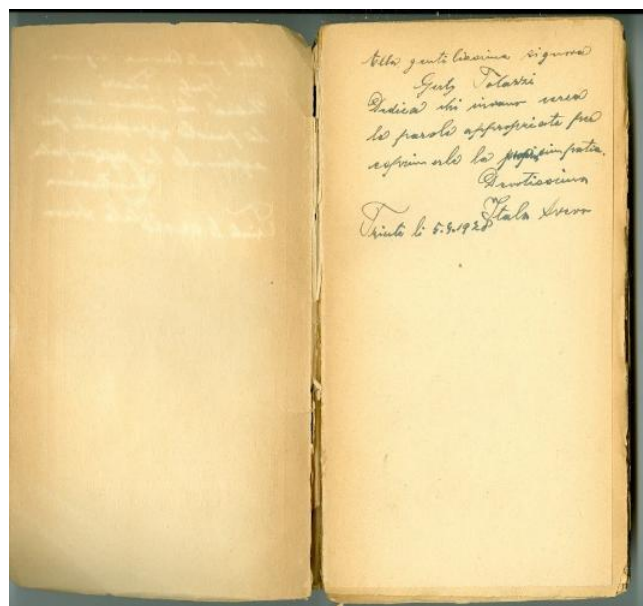 Alla gentilissima signora
Gerty Tolazzi
Dedica chi invano cerca
le parole appropriate per
esprimerle la simpatia.
Devotissimo
Italo Svevo
Trieste li 5.3.1928